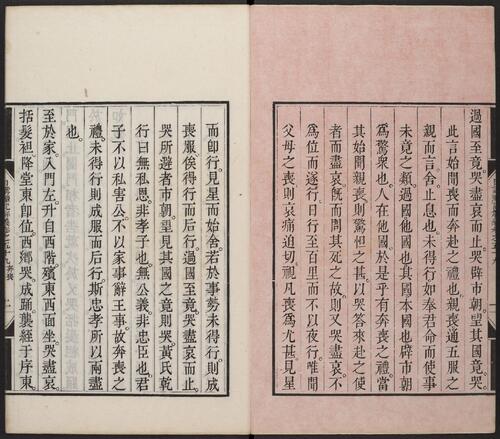 過國至竟。哭盡哀而止。哭辟市朝。望其國竟哭。
此言始聞喪而奔赴之禮也。親喪。通五服之
親而言。舍。止息也。未得行。如奉君命而使事
未竟之類。過國。他國也。其國。本國也。辟市朝。
爲驚衆也。人在他國。於是乎有奔喪之禮。當
其始聞親喪。則驚怛之甚。以哭答來赴之使
者而盡哀。旣而問其死之故。則又哭盡哀。不
爲位而遂行。日行百里而不以夜行。唯聞
父母之喪。則哀痛迫切。視凡喪爲尤甚。見星
而卽行。見星而始舍。若於事勢未得行。則成
喪服。俟得行而后行。過國至竟。哭盡哀而止。
哭所避者市朝。望見其國之竟則哭。黃氏乾
行曰。無私恩。非孝子也。無公義。非忠臣也。君
子不以私害公。不以家事辭王事。故奔喪之
禮。未得行則成服而后行。斯忠孝所以兩盡
也。
至於家。入門左。升自西階。殯東西面坐哭盡哀。
括髮袒。降堂東卽位。西鄉哭成踊。襲絰于序東。
奔喪